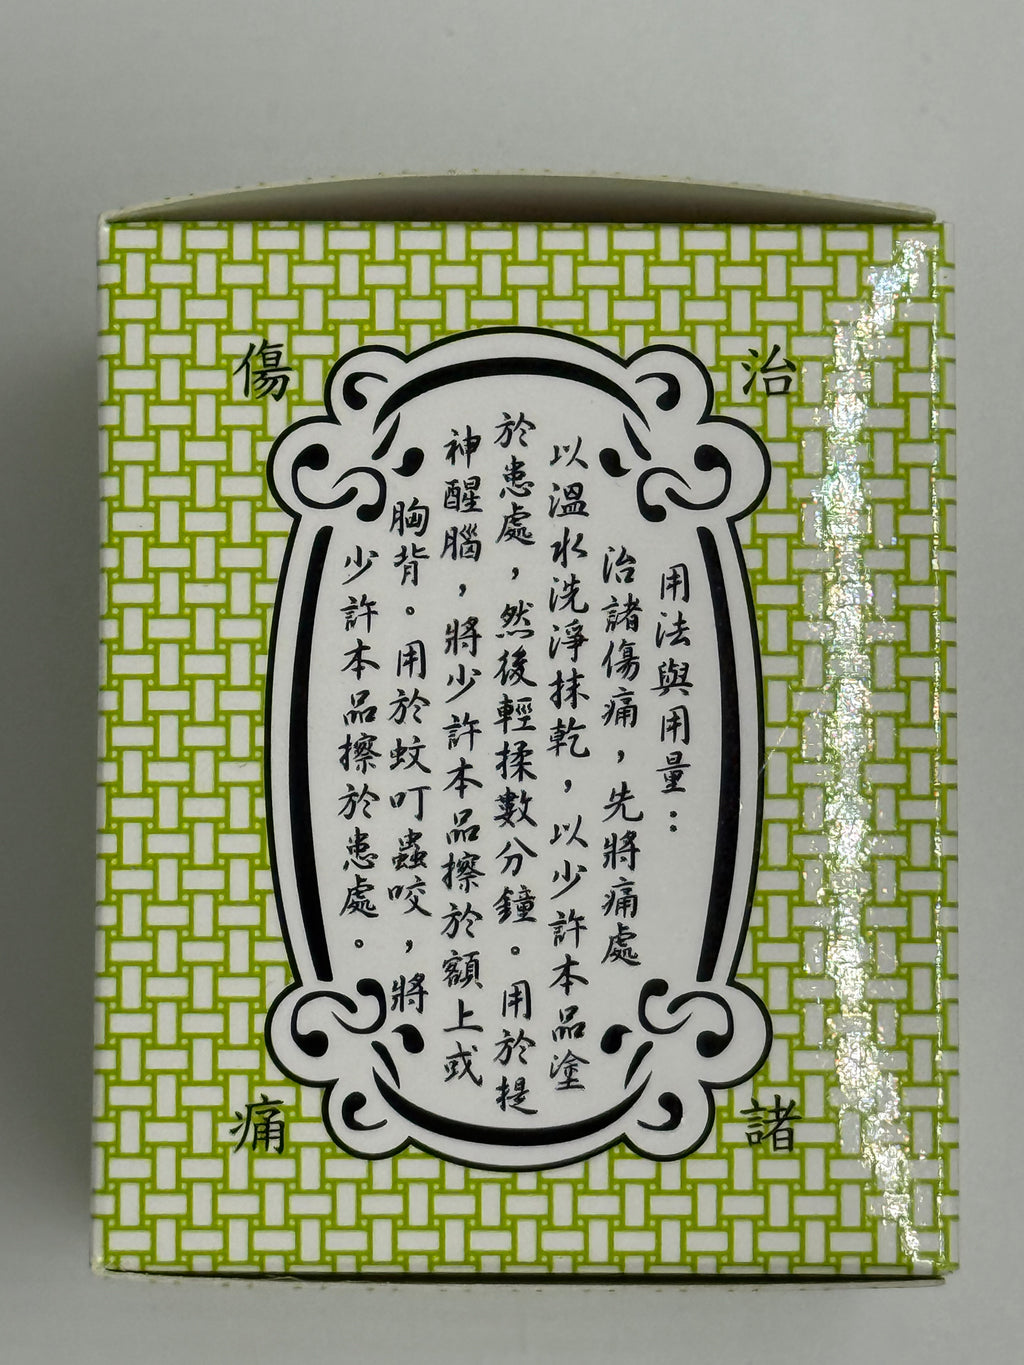 治
諸
傷
痛
用法與用量：
治諸傷痛，先將痛處
以溫水洗淨抹乾，以少許本品塗
於患處，然後輕揉數分鐘。用於提
神醒腦，將少許本品擦於額上或
胸背。用於蚊叮蟲咬，將
少許本品擦於患處。